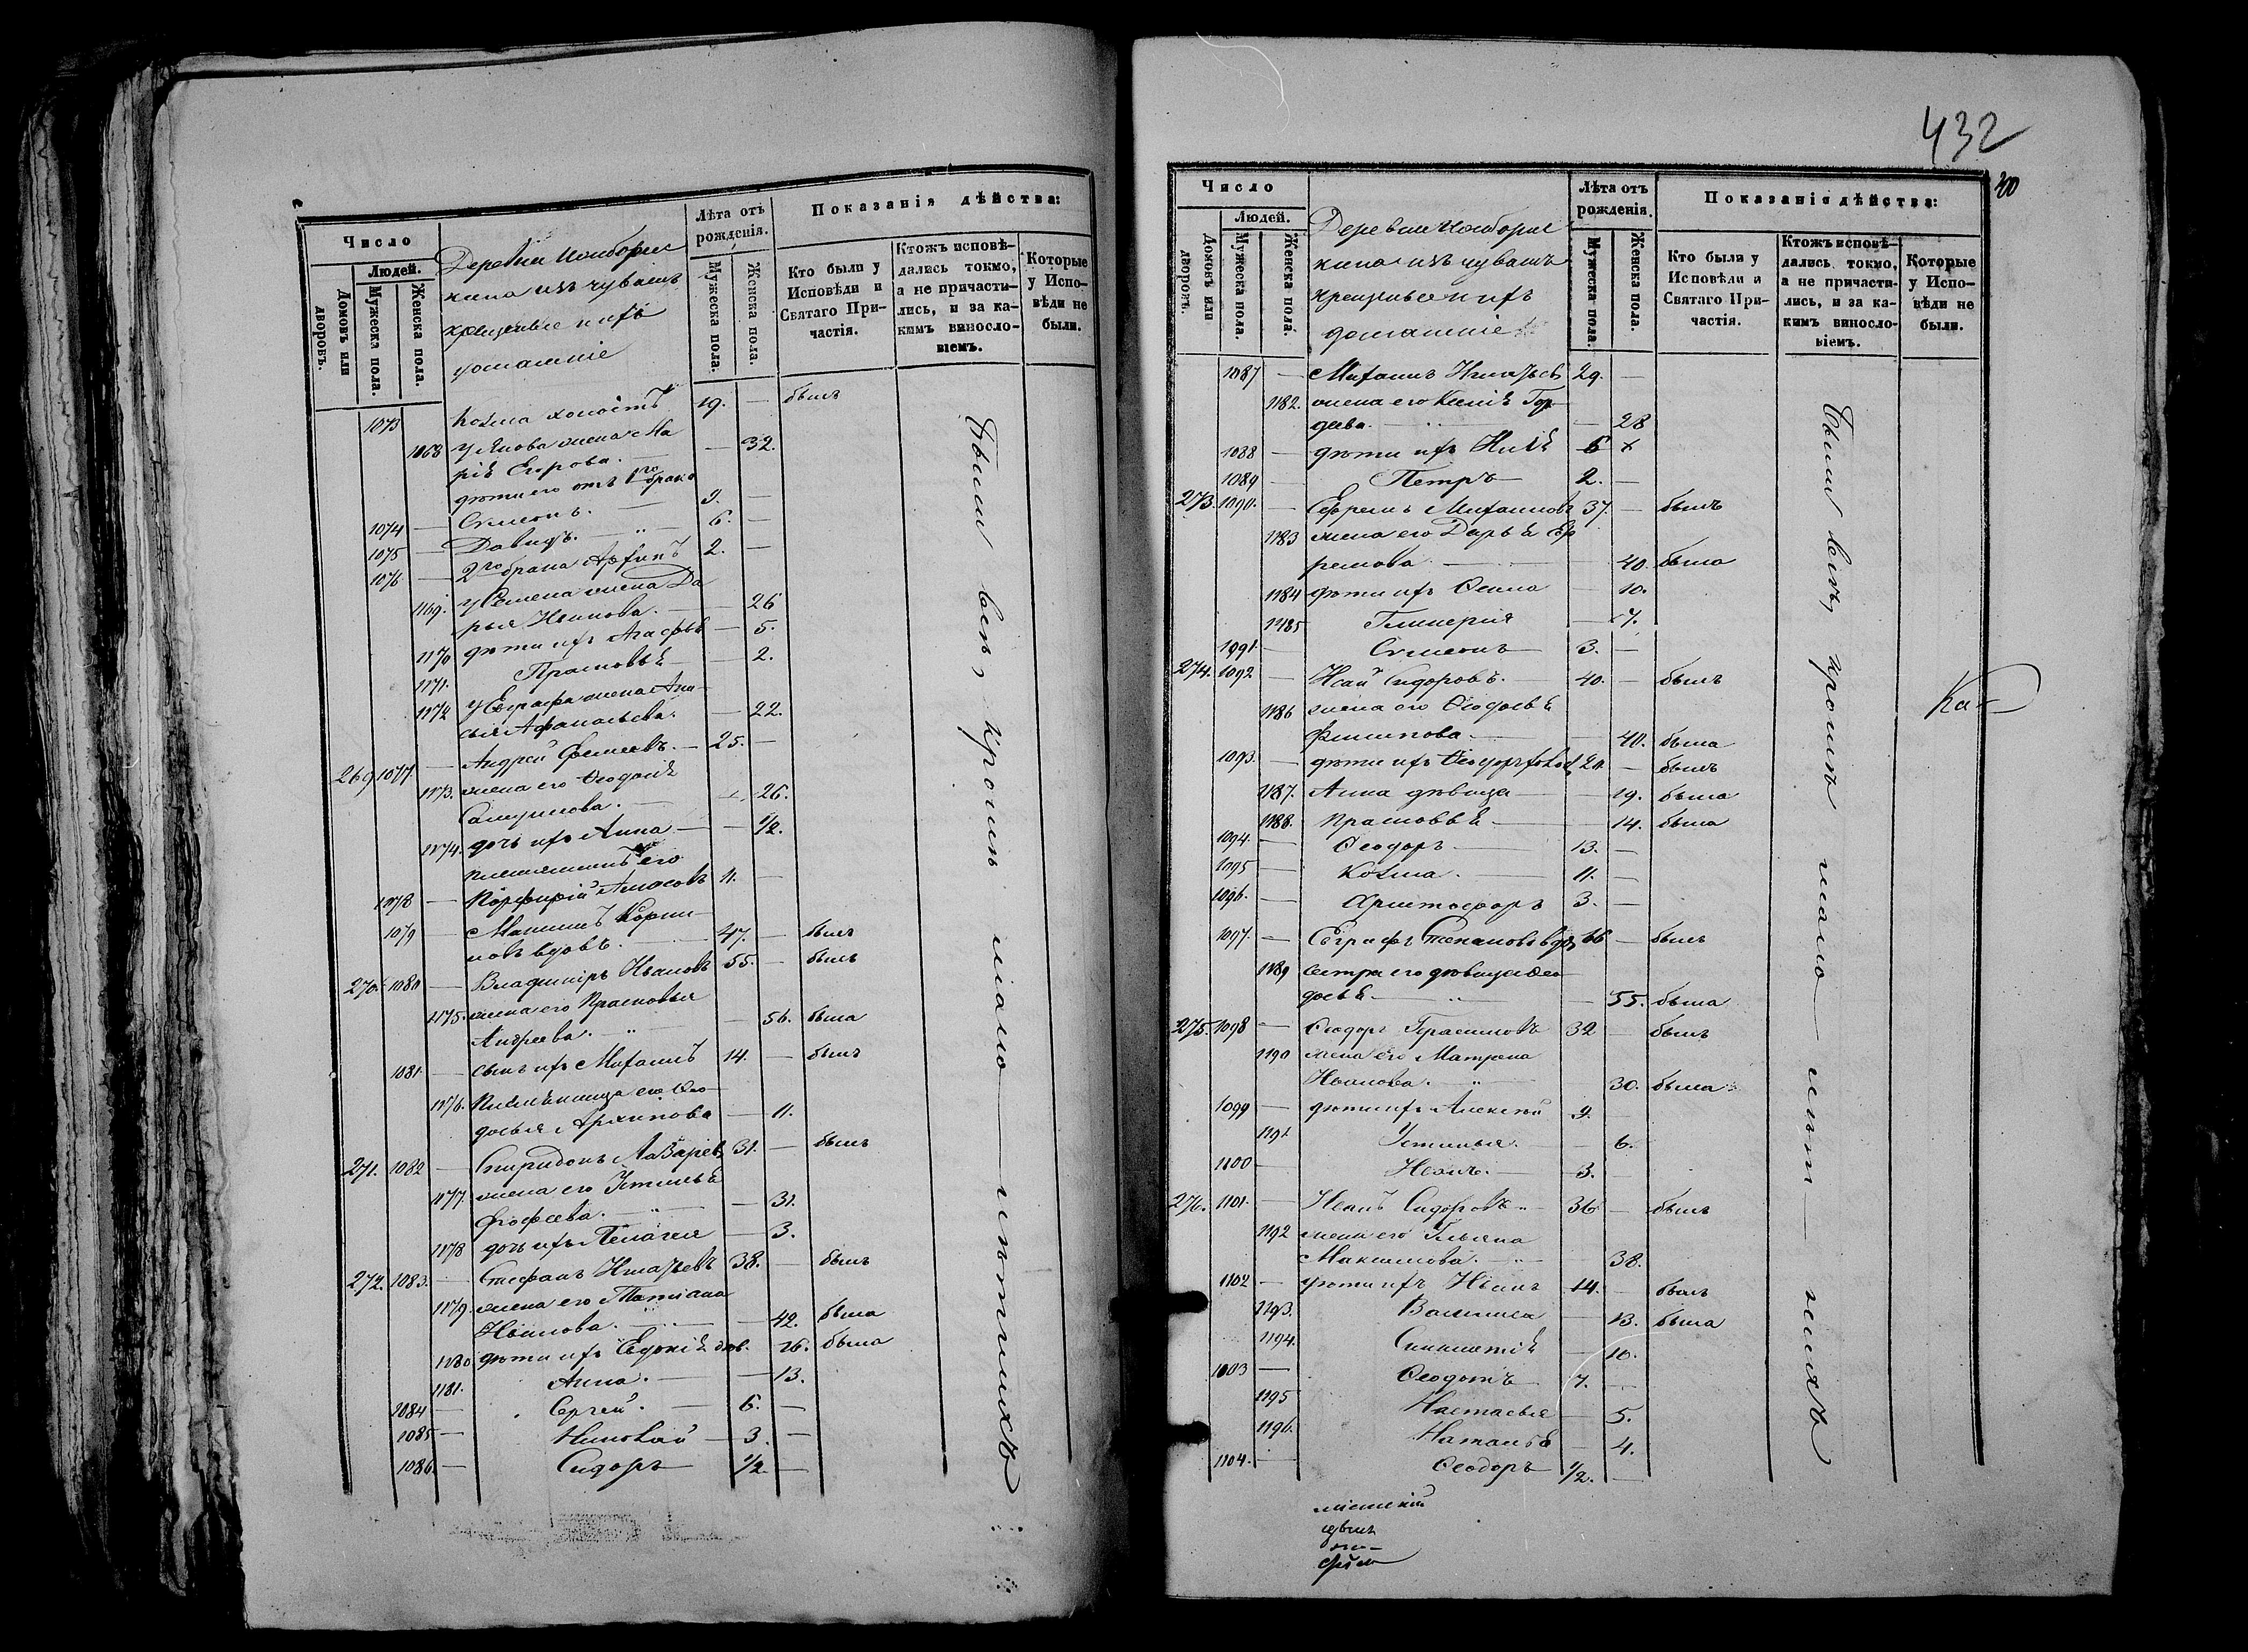 Число
Людей.
Домовъ или дворовъ.
Мужеска пола.
Женска пола.
Деревни
кина изъ чувашъ
крещеные и ихъ
домашніе
Лѣта отъ рожденія.
Мужеска пола.
Женска пола.
Показанія дѣйства:
Кто были у Исповѣди и Святаго Причастія.
Ктожъ исповѣ-
дались токмо,
а не причасти-
лись, и за ка-
кимъ винсло-
віемъ.
Которые
у Испо-
вѣди не
были.
1073 Козма холостъ 19. — былъ
1168 жена Ма
рія Егорова. — 32.
дѣти его отъ 1го брака
1074 — Симеонъ. 9. —
1075 — Давидъ. 6. —
1076 — 2го брака 2. —
1169. у Семена жена Да
рья Иванова. — 26
1170 дѣти ихъ — 5.
1171. Прасковья — 2.
1172 у Евграфа жена
Афанасьева. — 22.
269 1077. — Андрей 25. —
1173. жена его Ѳеодосія
Самуилова. — 26.
1174. дочь ихъ Анна — 1/2.
племянникъ его
1078 — Порфирій 11. —
1079 — Максимъ
вдовъ. 47. — былъ
270. 1080 — Владиміръ Ивановъ 55. — былъ
1175. жена его Прасковья
Андреева. — 56. была
1081. — сынъ ихъ Михаилъ 14. — былъ
1176. племянница его Ѳео
досья Архипова — 11.
271. 1082 — Спиридонъ Лазарев 31. — былъ
1177. жена его Устинья
— 31.
1178 дочь ихъ Пелагея — 3.
272. 1083. — Стефанъ Игнатьевъ 38. — былъ
1179. жена его Татіана
Иванова. — 42. была
1180 дѣти ихъ Евдокія 16. была
1181. Анна. — 13.
1084 — Сергей. — 6. —
1085 — Николай — 3. —
1086. — Сидоръ 1/2. —
Были всѣ, кромѣ мало-лѣтнихъ
432
200
Число
Людей.
Домовъ или дворовъ.
Мужеска пола.
Женска пола.
Деревни
кина изъ чувашъ
крещеные и ихъ
домашніе
Лѣта отъ
рожденія.
Мужеска пола.
Женска пола.
Показанія дѣйства:
Кто были у
Исповѣди и
Святаго При-
частія.
Ктожъ исповѣ-
дались токмо,
а не причасти-
лись, и за ка-
кимъ винсло-
віемъ.
Которые
у Испо-
вѣди не
были.
1087 — Михаилъ Игнатьев 29. —
1182. жена его Ксенія Гор
деева. — 28
1088 — дѣти ихъ 6
1089 — Петръ — 2. —
273. 1090. — Ефремъ Михаиловъ 37. — былъ
1183 жена его Дарья Еф
ремова — 40. была
1184 дѣти ихъ — 10.
1185 Гликерія — 7.
1091. — Симеонъ — 3. —
274. 1092 — Исай Сидоровъ. — 40. — былъ
1186 жена его Ѳеодосья
Филипова. — 40. была
1093. — дѣти ихъ 20. — былъ
1187. Анна дѣвица — 19. была
1188. Прасковья — 14. была
1094. — Ѳеодоръ — 13. —
1095 — Козма. — 11. —
1096. — Христофоръ 3. —
1097. — Евграфъ Степановъ вдов 66 — былъ
1189 сестра его дѣвица Ѳео
досья — 55. была
275. 1098 — Ѳеодоръ Герасимовъ 32 — былъ
1190 жена его Матрона
Иванова. — 30. была
1099 — дѣти ихъ Алексѣй 9. —
1191 Устинья. — 6.
1100 — Иванъ. — 3. —
276. 1101. — Иванъ Сидоровъ 36 — былъ
1192 жена его Ульяна
Максимова. — 38.
1102 — дѣти ихъ Иванъ 14. — былъ
1193. Василиса — 13. была
1194. — 10.
1103 — Ѳеодотъ 7. —
1195 Настасья — 5.
1196. Наталья — 4.
1104. — Ѳеодоръ 1/2. —
Были всѣ, кромѣ мало-лѣт-нихъ